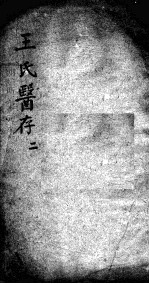 王氏醫存 二